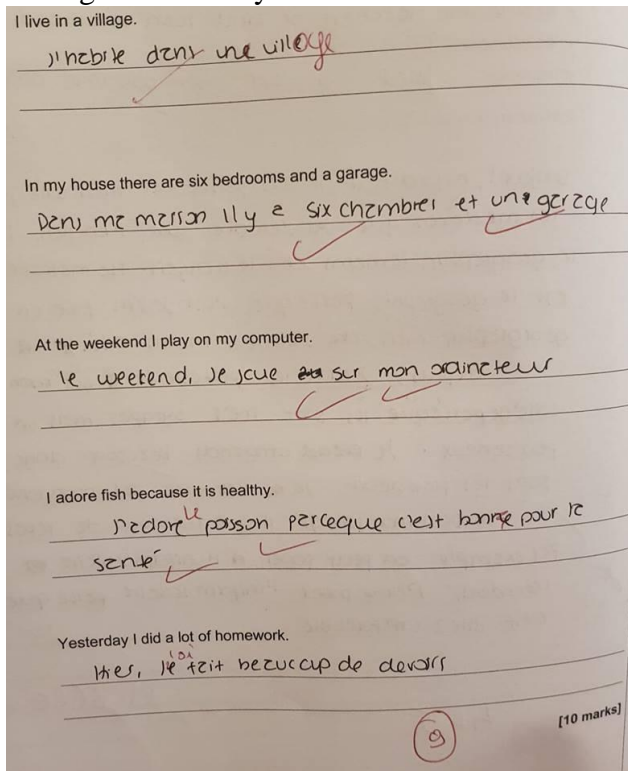 I live in a village.
J'habite dans une village
In my house there are six bedrooms and a garage.
Dans ma maison Il y a six chambres et une garage
At the weekend I play on my computer.
le weekend, Je joue sur mon ordinateur
I adore fish because it is healthy.
J'adore le poisson parceque c'est bonne pour la
santé
Yesterday I did a lot of homework.
ai
Hier, Je fait beaucoup de devoirs
9
[10 marks]